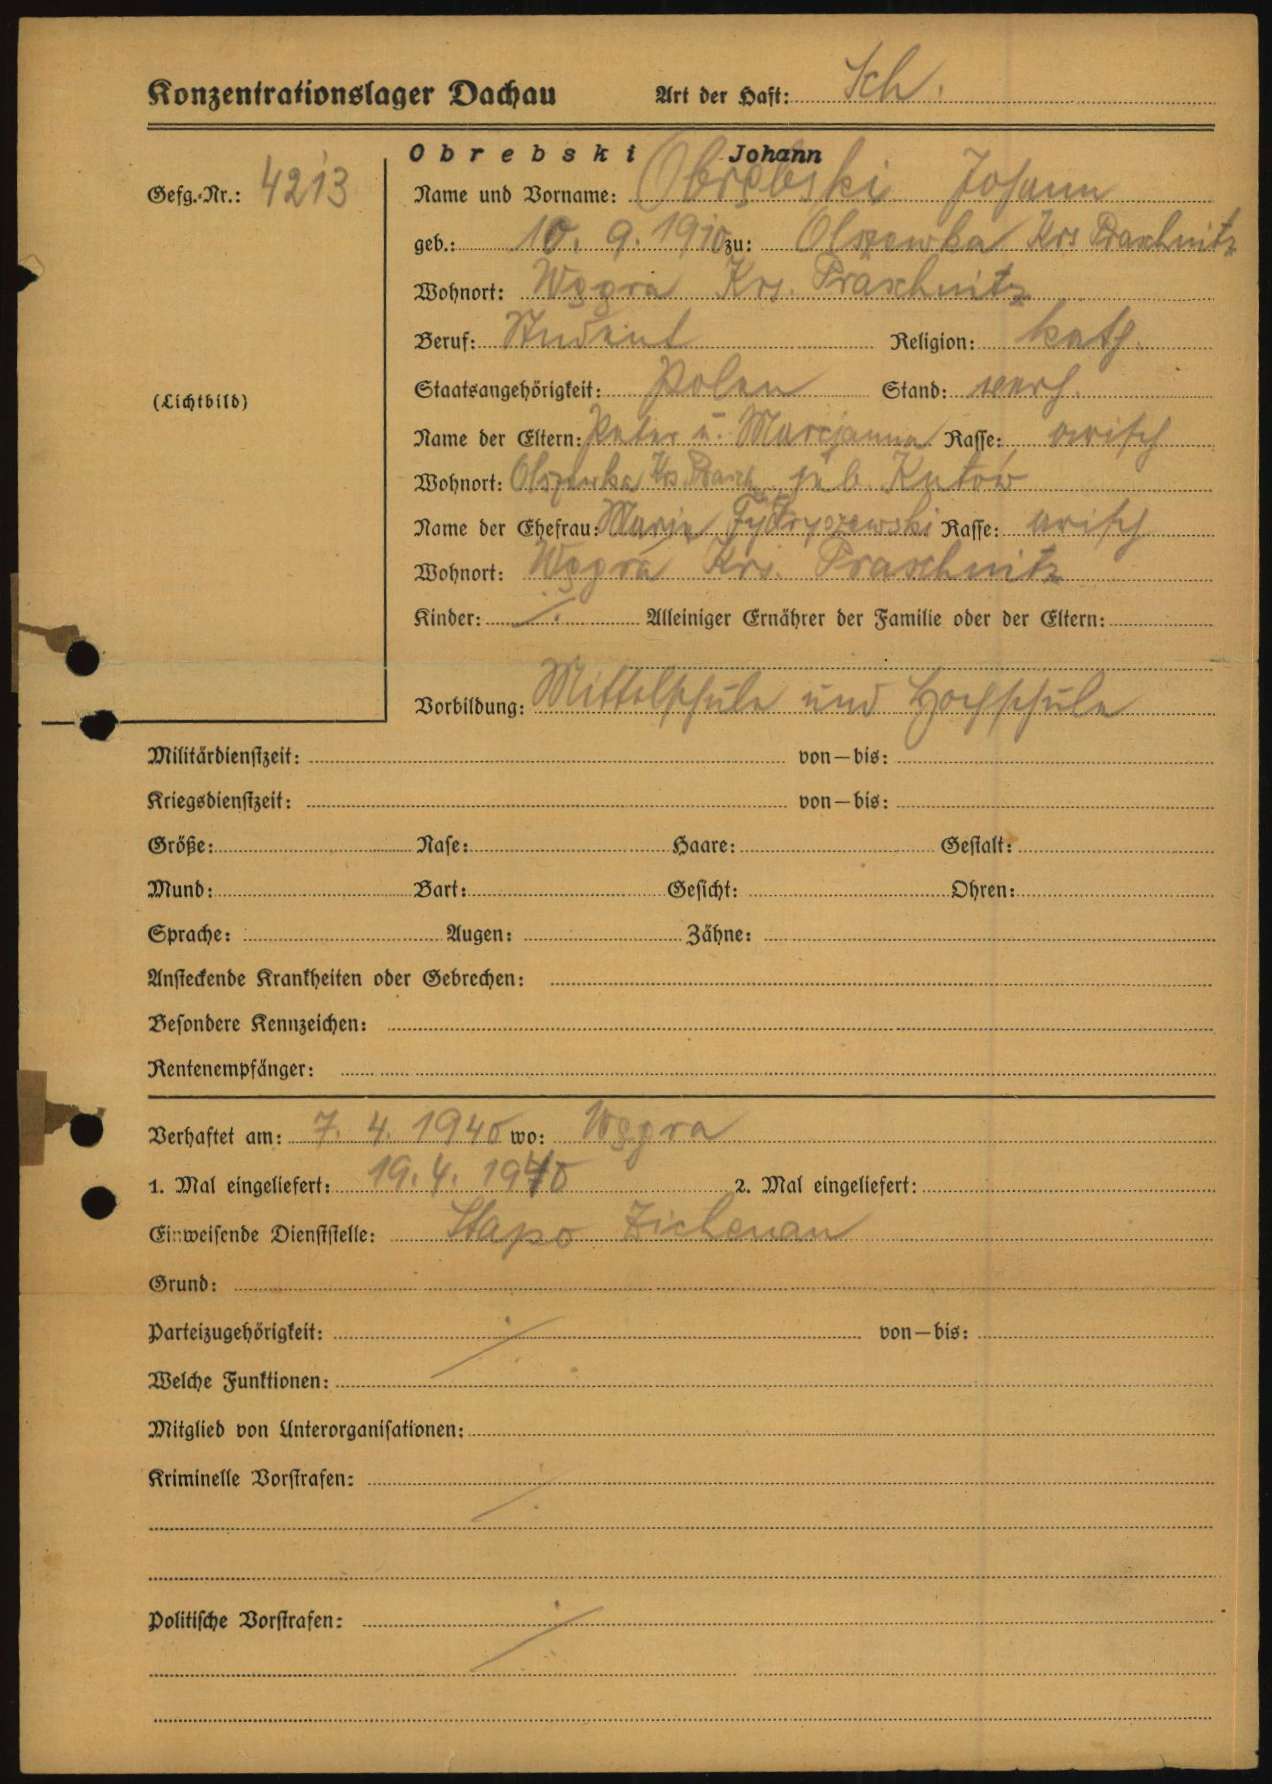 Konzentrationslager Dachau Art der Haft: Sch.
Obrebski Johann
Gefg.-Nr.: 4213
Name und Vorname: Obrębski Johann
geb.: 10. 9. 1910 zu: Olszewka Krs Praschnitz
Wohnort: Węgra Krs. Praschnitz
Beruf: Student Religion: kath.
(Lichtbild)
Staatsangehörigkeit: Polen Stand: verh.
Name der Eltern: Peter u. Marcjanna Rasse: arisch
Wohnort: Olszewka Krs. Prasch. geb. Kutów
Name der Ehefrau: Marja Rasse: arisch
Wohnort: Węgra Krs. Praschnitz
Kinder: ./. Alleiniger Ernährer der Familie oder der Eltern:
Vorbildung: Mittelschule und Hochschule
Militärdienstzeit: von—bis:
Kriegsdienstzeit: von—bis:
Größe: Nase: Haare: Gestalt:
Mund: Bart: Gesicht: Ohren:
Sprache: Augen: Zähne:
Ansteckende Krankheiten oder Gebrechen:
Besondere Kennzeichen:
Rentenempfänger:
Verhaftet am: 7. 4. 1940 wo: Węgra
1. Mal eingeliefert: 19. 4. 1940 2. Mal eingeliefert:
Einweisende Dienststelle: Stapo Zichenau
Grund:
Parteizugehörigkeit: ./. von—bis:
Welche Funktionen:
Mitglied von Unterorganisationen:
Kriminelle Vorstrafen: ./.
Politische Vorstrafen: ./.